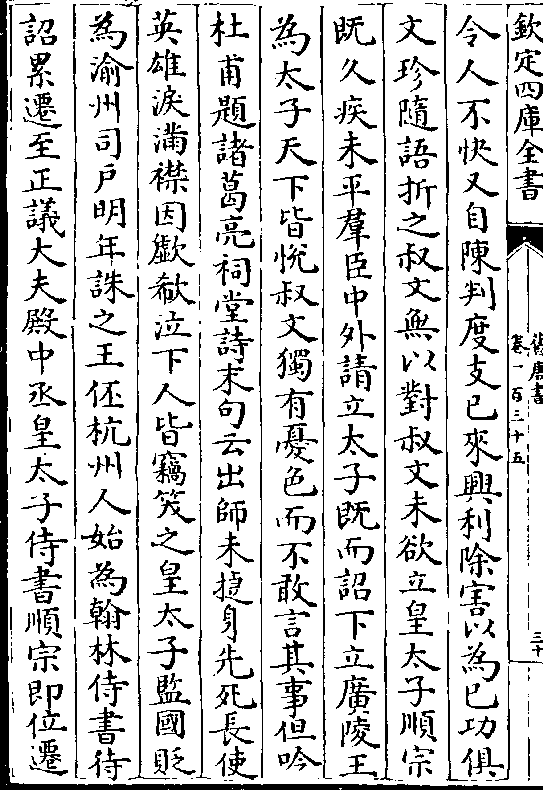 欽定四庫全書
舊唐書
卷一百三十五
三十
令人不快又自陳判度支已來興利除害以為已功俱
文珍隨語折之叔文無以對叔文未欲立皇太子順宗
既久疾未平羣臣中外請立太子既而詔下立廣陵王
為太子天下皆悅叔文獨有憂色而不敢言其事但吟
杜甫題諸葛亮祠堂詩末句云出師未捷身先死長使
英雄淚滿襟因歔欷泣下人皆竊笑之皇太子監國貶
為渝州司戶明年誅之王伾杭州人始為翰林侍書待
詔累遷至正議大夫殿中丞皇太子侍書順宗即位遷